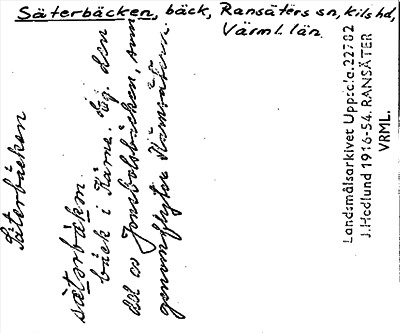 Säterbäcken, bäck, Ransäters sn, Kils hd,
Värml. län.
Säterbäcken
sætərbækən.
bäck i Kärne. Eg. den
del av Jonsbolsbäcken, som
genomflyter
Landsmålsarkivet Uppsala 22782
J. Hedlund 1916-54. RANSÄTER
VRML.